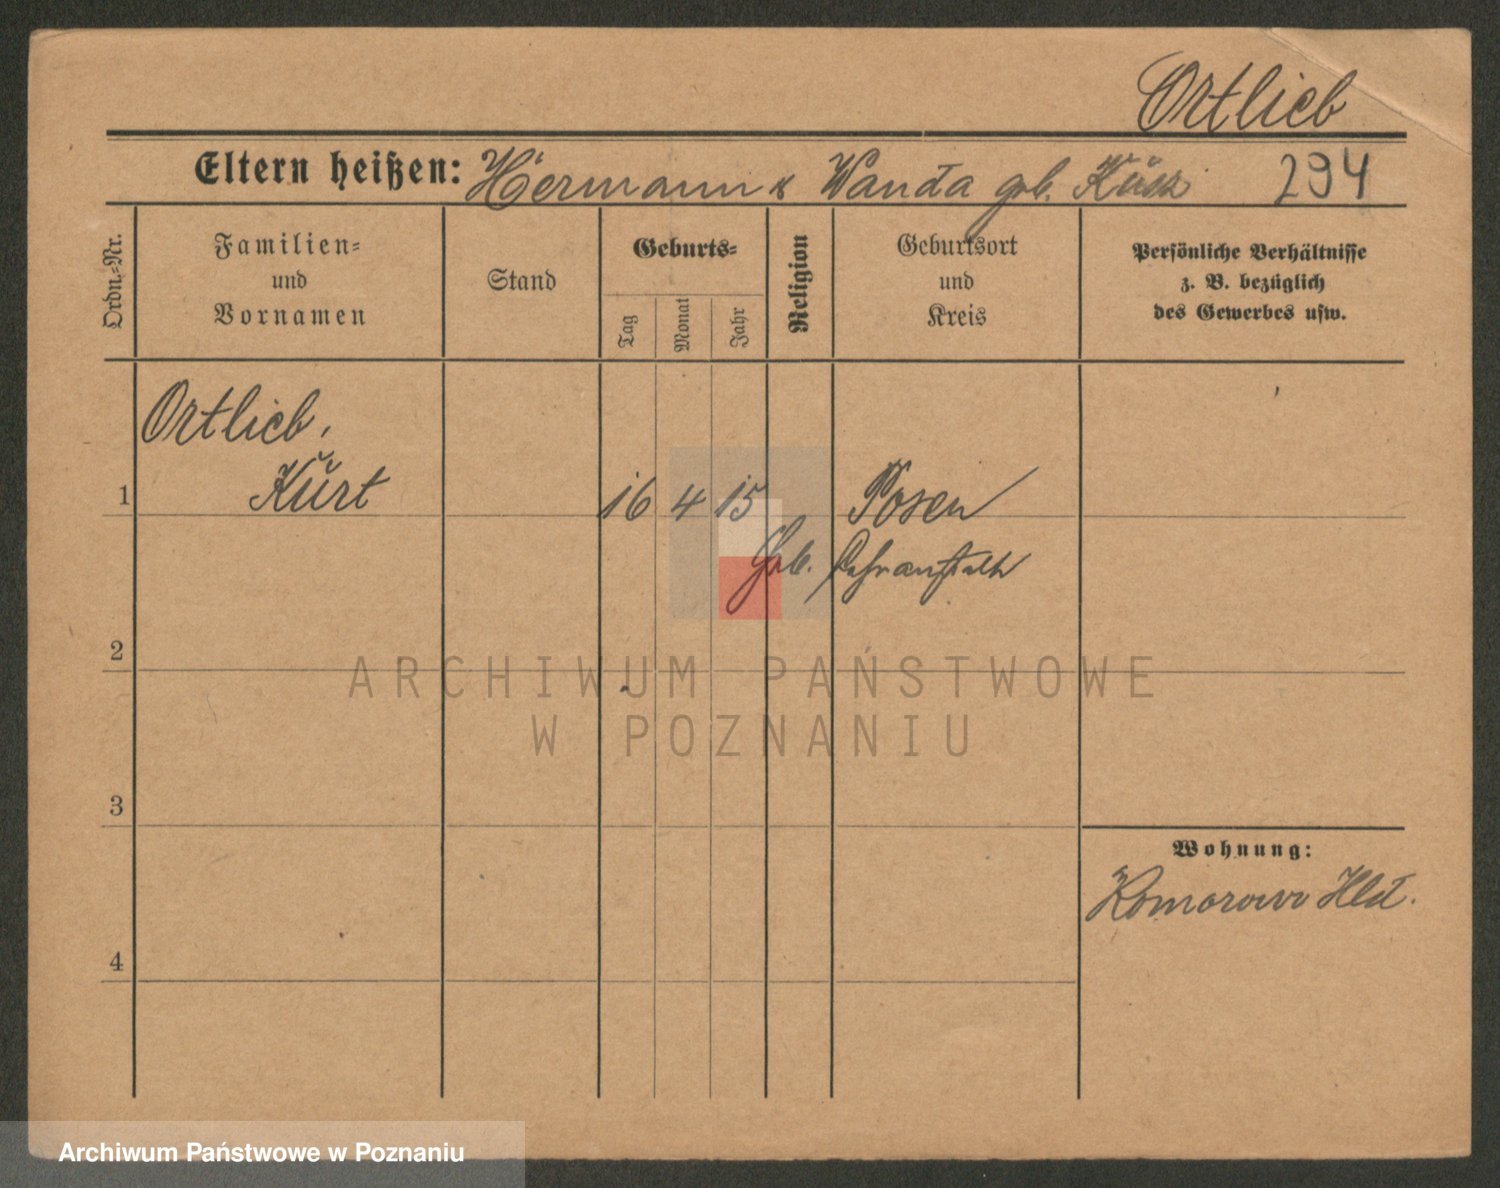 Ortlieb
Eltern heißen: Hermann & Wanda geb. 294
Ordn.-Nr.
Familien-
und
Vornamen
Stand
Geburts-
Tag
Monat
Jahr
Religion
Geburtsort
und
Kreis
Persönliche Verhältnisse
z. B. bezüglich
des Gewerbes usw.
Ortlieb,
1 Kurt 16 4 15 Posen
Geb.
2
ARCHIWUM PAŃSTWOWE
W POZNANIU
3
Wohnung:
Komorowo Hld.
4
Archiwum Państwowe w Poznaniu